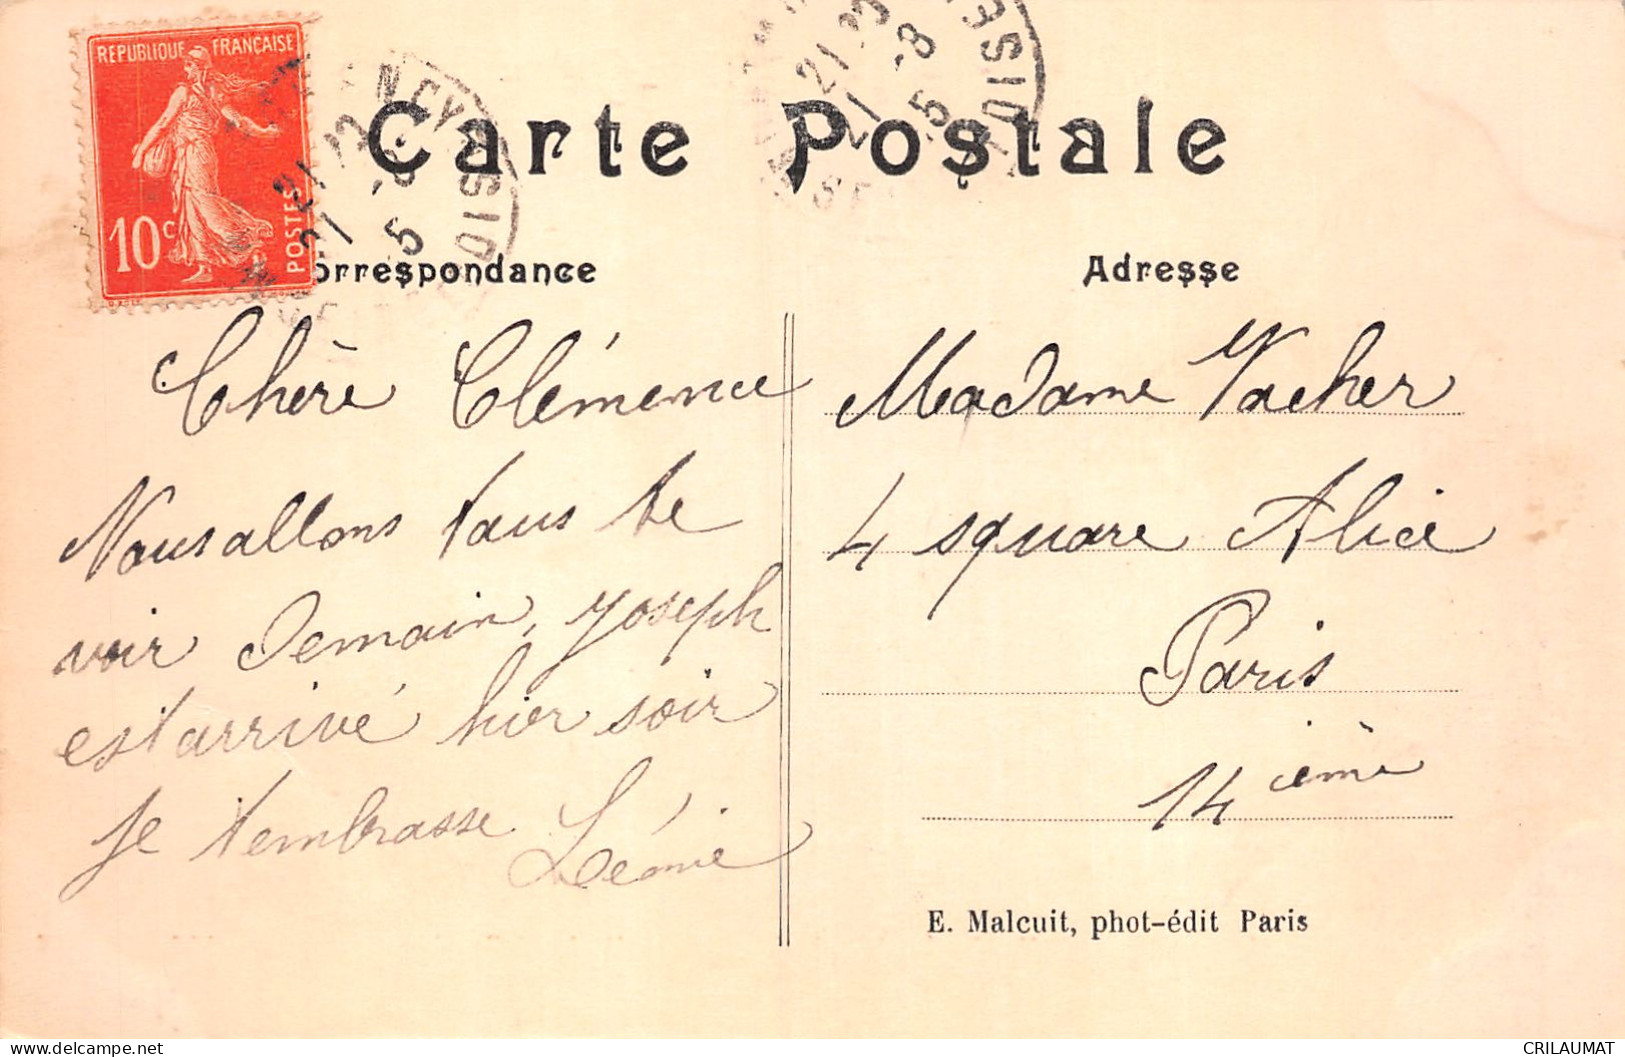 REPUBLIQUE FRANÇAISE
10c
POSTES
Carte Postale
orrespondance
Adresse
Chère Clémence
Nous allons tous te
voir demain, Joseph
est arrivé hier soir
Je t'embrasse Léonie
Madame Vacher
4 square Alice
Paris
14 ième
E. Malcuit, phot-édit Paris
delcampe.net
CRILAUMAT